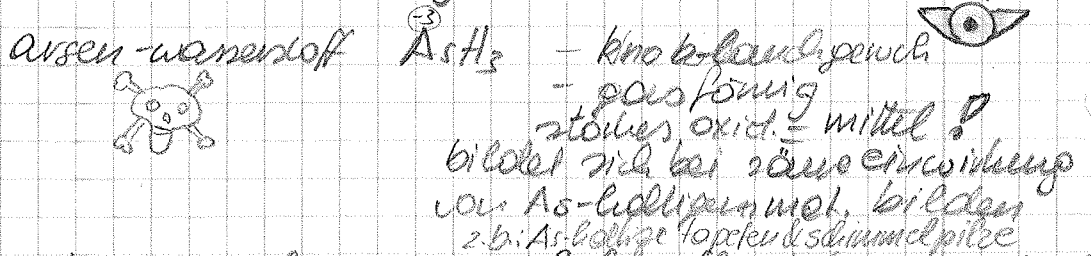 arsen-wasserstoff -3 AsH3 - knoblauchgeruch
- gasförmig
starkes oxid.=mittel!
bildet sich bei säureeinwirkung
von As-haltigen mat. bilden
z.b.: As-haltige Tapeten & schimmelpilze